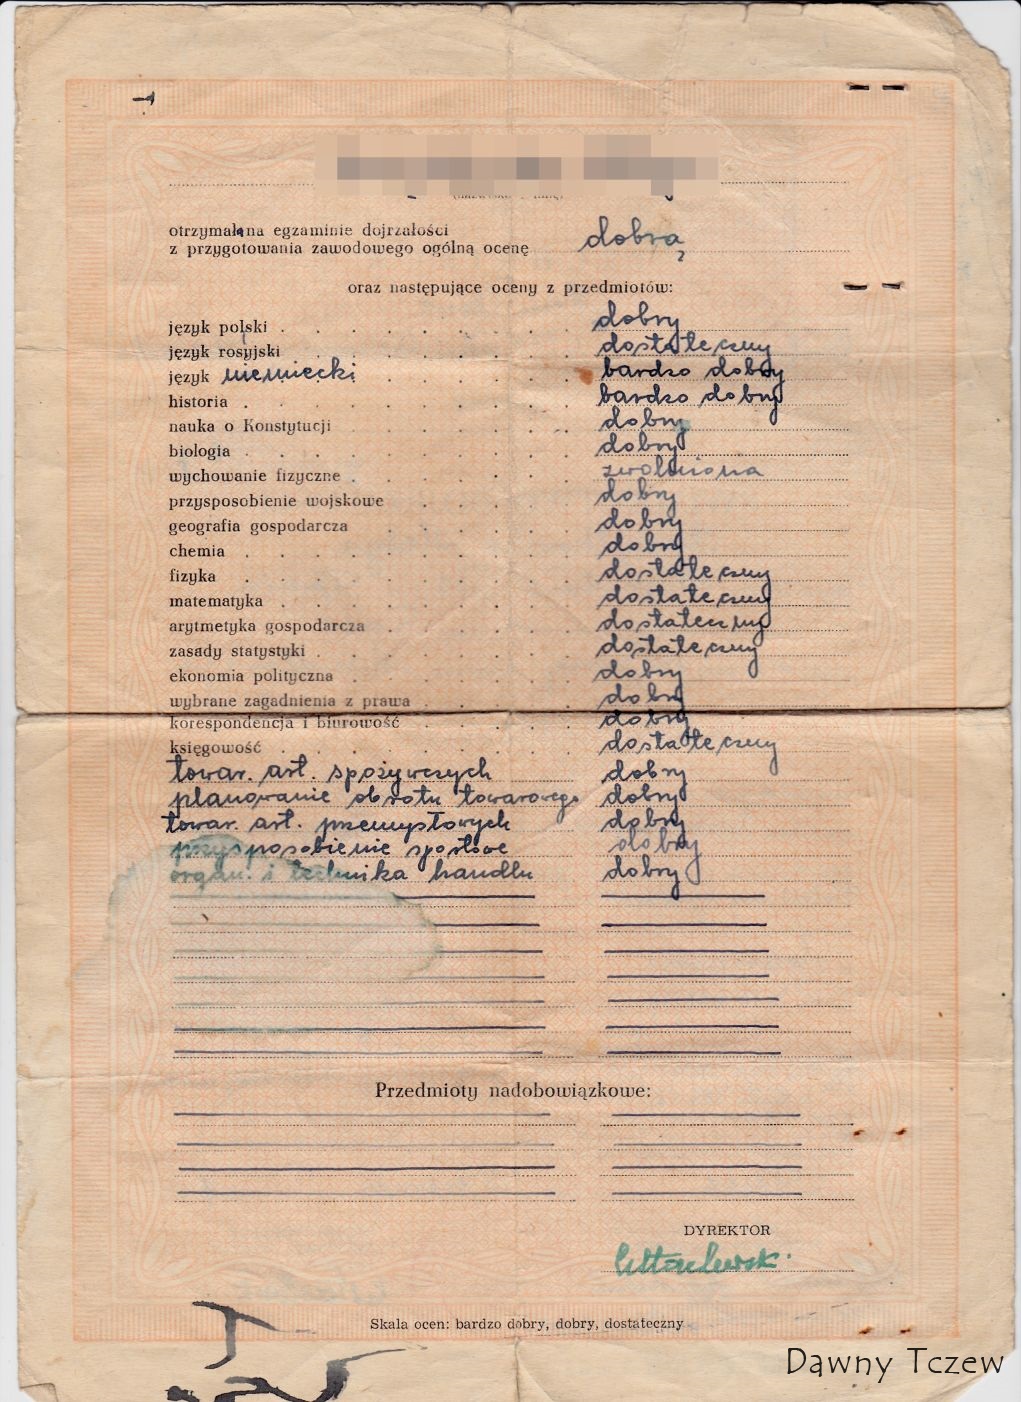 otrzymała na egzaminie dojrzałości
z przygotowania zawodowego ogólną ocenę dobrą
oraz następujące oceny z przedmiotów:
język polski . . . . . . . . dobry
język rosyjski . . . . . . . dostateczny
język niemiecki . . . . . bardzo dobry
historia . . . . . . . . . bardzo dobry
nauka o Konstytucji . . . . . dobry
biologia . . . . . . . . . dobry
wychowanie fizyczne . . . . . . zwolniona
przysposobienie wojskowe . . . . . dobry
geografia gospodarcza . . . . . dobry
chemia . . . . . . . . . dobry
fizyka . . . . . . . . . dostateczny
matematyka . . . . . . . . dostateczny
arytmetyka gospodarcza . . . . . dostateczny
zasady statystyki . . . . . . . dostateczny
ekonomia polityczna . . . . . . dobry
wybrane zagadnienia z prawa . . . . dobry
korespondencja i biurowość . . . . dobry
księgowość . . . . . . . . dostateczny
towar. art. spożywczych dobry
planowanie obrotu towarowego dobry
towar. art. przemysłowych dobry
przysposobienie sportowe dobry
organ. i technika handlu dobry
Przedmioty nadobowiązkowe:
DYREKTOR
Skala ocen: bardzo dobry, dobry, dostateczny
Dawny Tczew